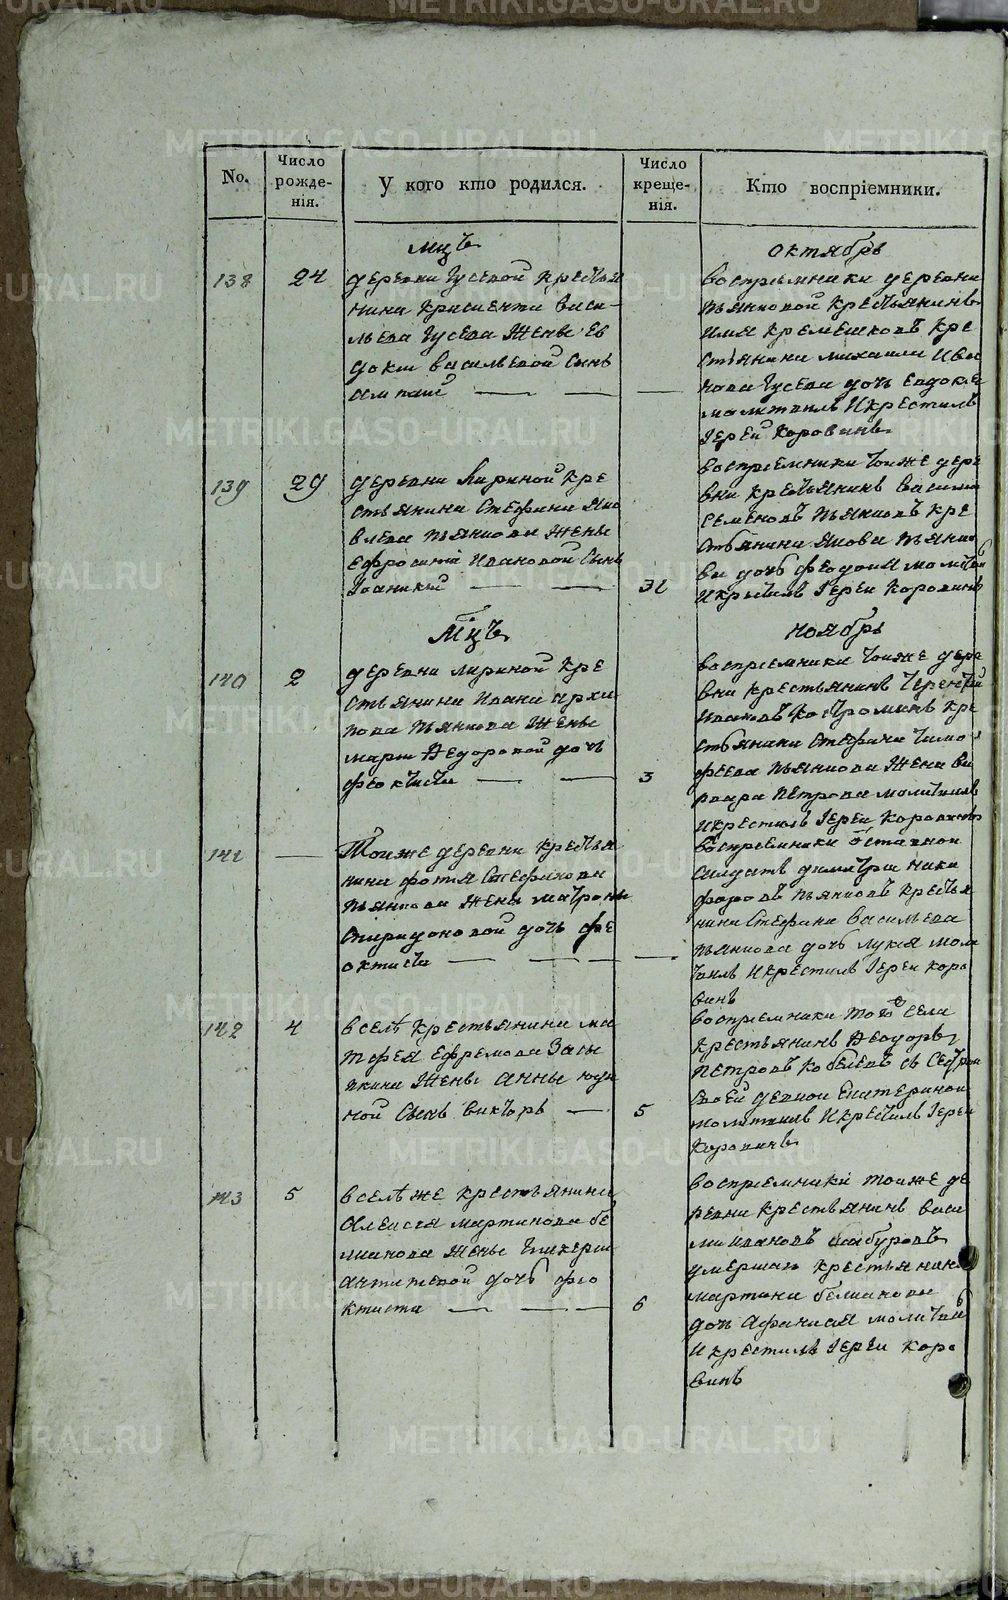 No.
Число рожде- нія.
У кого кто родился.
Число креще- нія.
Кто воспріемники.
Мцъ
октябрь
138
24
деревни Гусевой крестья
нина
Васи
льева Гусева жены Ев
докии Васильевой сынъ
воспріемники деревни
Пьянковой крестьянинъ
кре
стьянина Михаила Ива
нова Гусева дочь Евдокея
молитвилъ и крестилъ
Іерей Коровинъ
139
29
деревни Лириной кре
стьянина Стефана Яко
влева Пьянкова жены
Ефросиніи Ивановой сынъ
Іоаникий
31
воспріемники тоиже дере
вни крестьянинъ Василий
Семеновъ Пьянковъ кре
стьянина Якова Пьянко
ва дочь Феодосия молитвил
и крестилъ Іерей Коровинъ
Мцъ
ноябрь
140
2
деревни Лириной кре
стьянина Ивана Архи
пова Пьянкова жены
Марии Федоровой дочь
Феоктиста
3
воспріемники тоиже дере
вни крестьянинъ Терентий
Ивановъ Костроминъ кре
стьянина Стефана Тимо
феева Пьянкова жена Ва
рвара Петрова молитвилъ
и крестилъ Іерей Коровинъ
141
Тоиже деревни крестья
нина Фотия Стефанова
Пьянкова жена Матроны
Спиридоновой дочь Фе
октиста
воспріемники отставной
салдатъ Димитрий Ники
форовъ Пьянковъ крестья
нина Стефана Васильева
Пьянкова дочь Лукия моли
твилъ и крестилъ Іерей Коро
винъ
142
4
в селѣ крестьянина Ма
тфея Ефремова Засы
пкина жены Анны
ной сынъ Викторъ
5
воспріемники того села
крестьянинъ Феодоръ
Петровъ Кобелевъ съ сестрои
своей девкой Екатериной
молитвилъ и крестилъ Іерей
Коровинъ
143
5
в селѣ же крестьянина
Алексея Мартинова Бе
лианова жены Гликерии
дочь Фео
ктиста
6
воспріемники тоиже де
ревни крестьянинъ Васи
лий Ивановъ Сабуровъ
умершаго крестьянина
Мартина Белианова
дочь Афанасия молитвил
и крестилъ Іерей Коро
винъ
METRIKI.GASO-URAL.RU